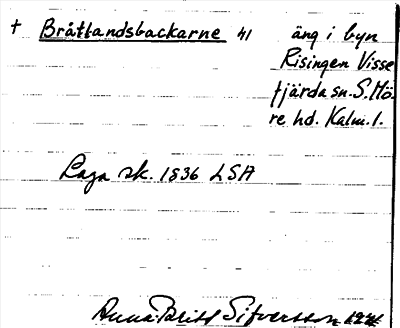 † Bråttandsbackarne 41 äng i byn
Risingen Visse
fjärda sn. S. Mö
re hd. Kalm. l.
Laga sk. 1836 LSA
Anna-Britt Sifversson